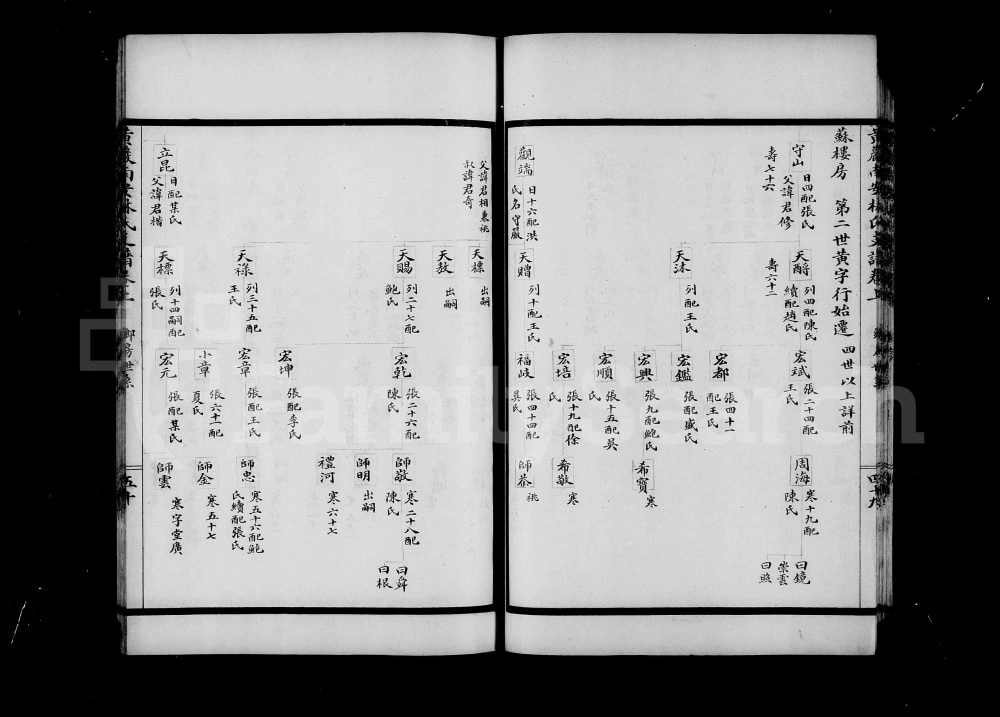 蘇樓房 第二世黃字行始遷 四世以上詳前
守山 日四配張氏
父諱君修
壽七十六
天爵 列四配陳氏
續配趙氏
壽六十二
天沐 列配王氏
宏斌 張二十四配
王氏
宏都 張四十一
配王氏
宏鑑 張配盛氏
宏興 張九配鮑氏
宏順 張十五配吳
氏
宏培 張十九配徐
氏
周海 寒十九配
陳氏
希寶 寒
希敬 寒
曰鏡
崇雲
曰照
觀端 日十六配洪
氏名守嚴
天贈 列十配王氏
福岐 張四十四配
吳氏
師恭 祧
四十九
父諱君相兼祧
叔諱君奇
天標 出嗣
天敖 出嗣
天賜 列二十七配
鮑氏
天祿 列三十五配
王氏
宏乾 張二十六配
陳氏
宏坤 張配李氏
宏章 張配王氏
小章 張六十一配
夏氏
師敬 寒二十八配
陳氏
師明 出嗣
禮河 寒六十七
師忠 寒五十六配鮑
氏續配張氏
師金 寒五十七
曰舜
曰根
立昆 日配某氏
父諱君楷
天標 列十四嗣配
張氏
宏元 張配某氏
師雲 寒字堂廣
五十
FamilySearch